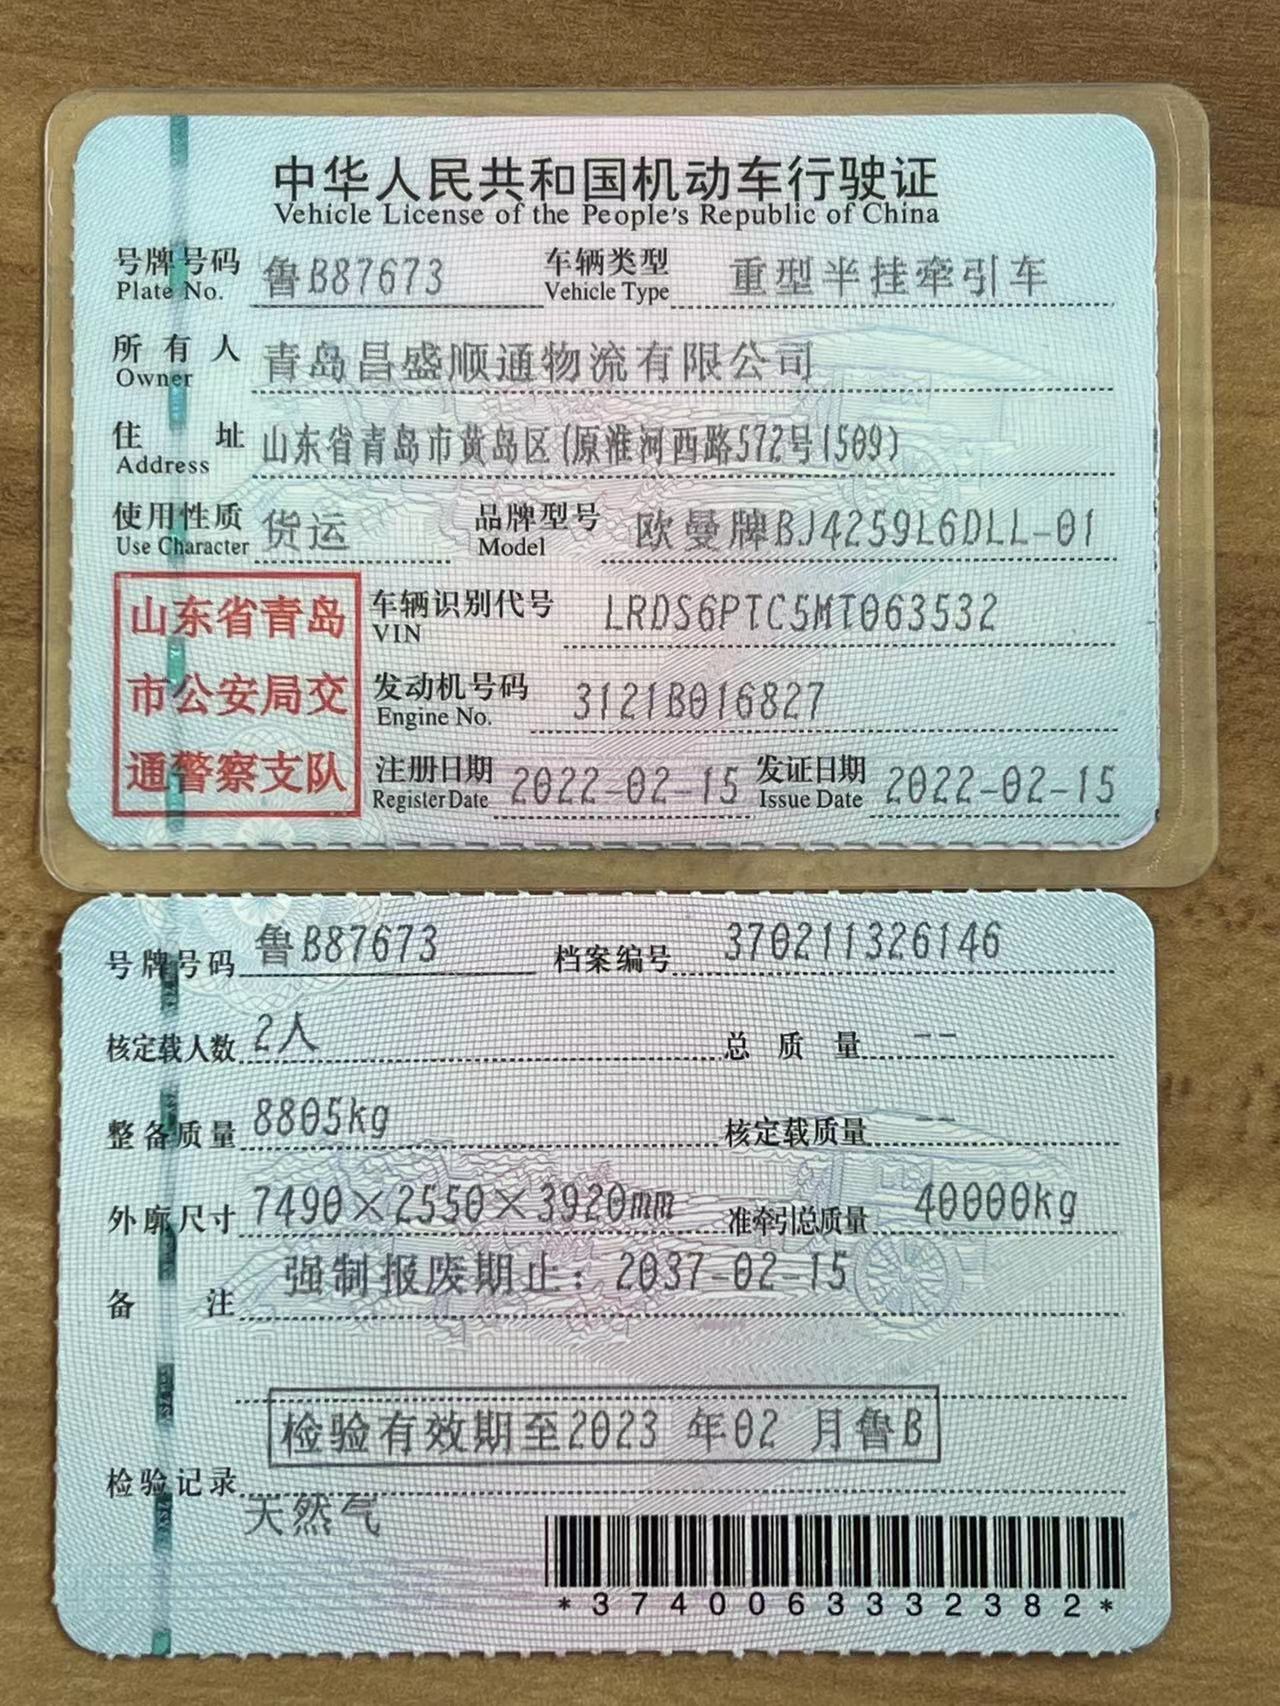 中华人民共和国机动车行驶证
Vehicle License of the People's Republic of China
号牌号码 鲁B87673 车辆类型 重型半挂牵引车
Plate No. Vehicle Type
所有人 青岛昌盛顺通物流有限公司
Owner
住址 山东省青岛市黄岛区(原淮河西路572号1509)
Address
使用性质 货运 品牌型号 欧曼牌BJ4259L6DLL-01
Use Character Model
山东省青岛
市公安局交
通警察支队
车辆识别代号 LRDS6PTC5MT063532
VIN
发动机号码 3121B016827
Engine No.
注册日期 2022-02-15 发证日期 2022-02-15
Register Date Issue Date
号牌号码 鲁B87673 档案编号 370211326146
核定载人数 2人 总质量 --
整备质量 8805kg 核定载质量 --
外廓尺寸 7490×2550×3920mm 准牵引总质量 40000kg
备注 强制报废期止：2037-02-15
检验有效期至2023 年02 月鲁B
检验记录
天然气
*3740063332382*